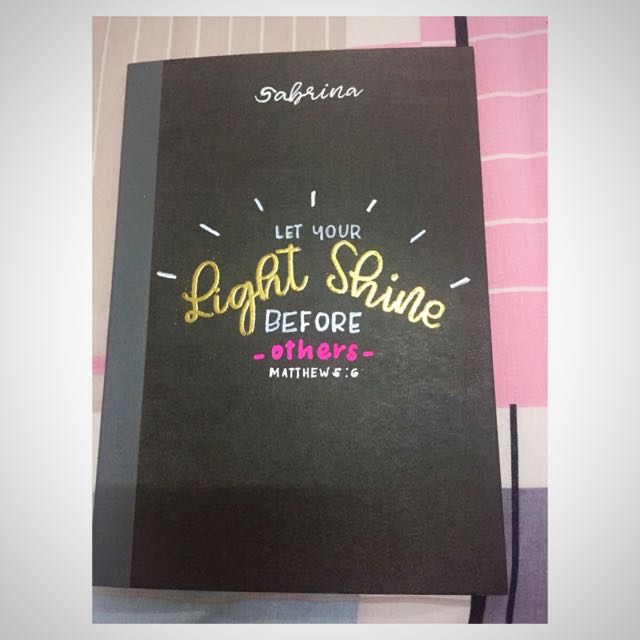 Sabrina
LET YOUR
Light Shine
BEFORE
-others-
MATTHEW 5:6